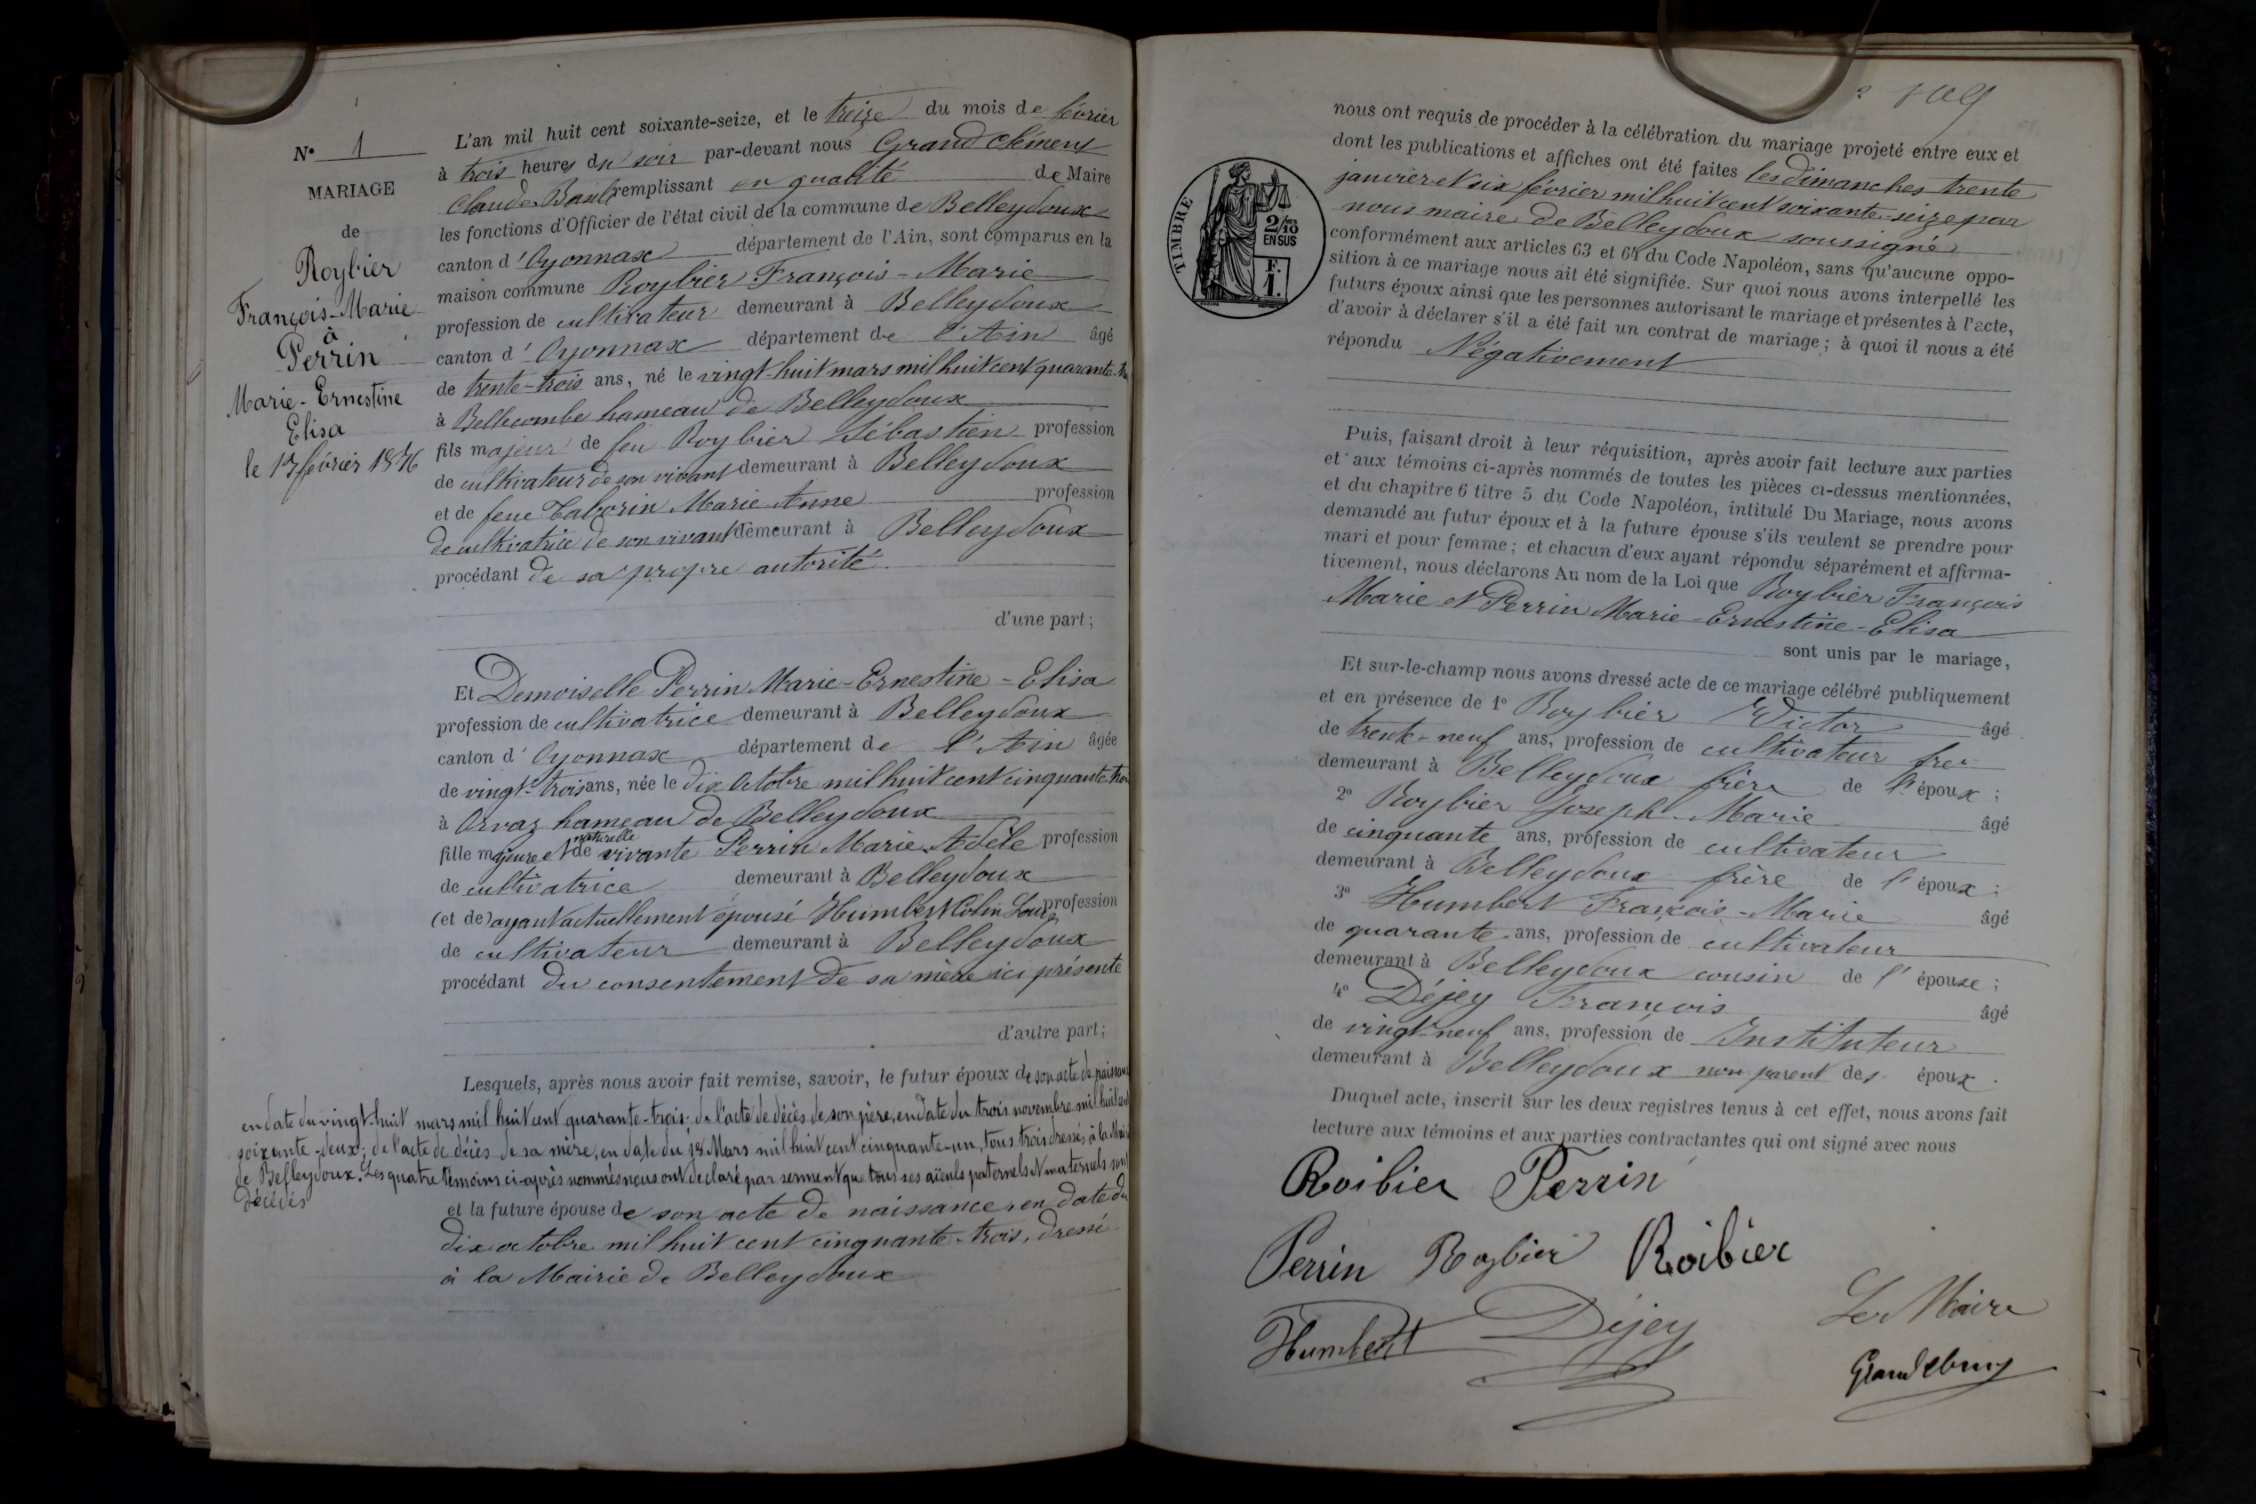 N° 1
MARIAGE
de
Roybier
François-Marie
à
Perrin
Marie-Ernestine
Elisa
le 13 février 1876
L'an mil huit cent soixante-seize, et le treize du mois de février
à trois heures du soir par-devant nous Grand Clément
Claude Basile remplissant en qualité de Maire
les fonctions d'Officier de l'état civil de la commune de Belleydoux
canton d'Oyonnax département de l'Ain, sont comparus en la
maison commune Roybier François-Marie
profession de cultivateur demeurant à Belleydoux
canton d'Oyonnax département de l'Ain âgé
de trente-trois ans, né le vingt-huit mars mil huit cent quarante
à Bellecombe hameau de Belleydoux
fils majeur de feu Roybier Sébastien profession
de cultivateur de son vivant demeurant à Belleydoux
et de feue Taborin Marie Anne profession
de cultivatrice de son vivant demeurant à Belleydoux
procédant de sa propre autorité
d'une part;
Et Demoiselle Perrin Marie-Ernestine-Elisa
profession de cultivatrice demeurant à Belleydoux
canton d'Oyonnax département de l'Ain âgée
de vingt-trois ans, née le dix octobre mil huit cent cinquante trois
à Orvaz hameau de Belleydoux
fille majeure et naturelle de vivante Perrin Marie Adèle profession
de cultivatrice demeurant à Belleydoux
(et de) ayant actuellement épousé Humbert Colin Louis profession
de cultivateur demeurant à Belleydoux
procédant du consentement de sa mère ici présente
d'autre part;
Lesquels, après nous avoir fait remise, savoir, le futur époux de son acte de naissance
en date du vingt-huit mars mil huit cent quarante-trois; de l'acte de décès de son père, en date du trois novembre mil huit cent
soixante-deux; de l'acte de décès de sa mère, en date du 18 Mars mil huit cent cinquante-un, tous trois dressés à la Mairie
de Belleydoux. Les quatre témoins ci-après nommés nous ont déclaré par serment que tous ses aïeuls paternels et maternels sont
décédés
et la future épouse de son acte de naissance en date du
dix octobre mil huit cent cinquante-trois, dressé
à la Mairie de Belleydoux
TIMBRE
2/10
EN SUS
F.
1.
nous ont requis de procéder à la célébration du mariage projeté entre eux et
dont les publications et affiches ont été faites les dimanches trente
janvier et six février mil huit cent soixante-seize par
nous maire de Belleydoux soussigné
conformément aux articles 63 et 64 du Code Napoléon, sans qu'aucune oppo-
sition à ce mariage nous ait été signifiée. Sur quoi nous avons interpellé les
futurs époux ainsi que les personnes autorisant le mariage et présentes à l'acte,
d'avoir à déclarer s'il a été fait un contrat de mariage; à quoi il nous a été
répondu Négativement
Puis, faisant droit à leur réquisition, après avoir fait lecture aux parties
et aux témoins ci-après nommés de toutes les pièces ci-dessus mentionnées,
et du chapitre 6 titre 5 du Code Napoléon, intitulé Du Mariage, nous avons
demandé au futur époux et à la future épouse s'ils veulent se prendre pour
mari et pour femme; et chacun d'eux ayant répondu séparément et affirma-
tivement, nous déclarons Au nom de la Loi que Roybier François
Marie et Perrin Marie-Ernestine-Elisa
sont unis par le mariage,
Et sur-le-champ nous avons dressé acte de ce mariage célébré publiquement
et en présence de 1° Roybier Victor âgé
de trente-neuf ans, profession de cultivateur
demeurant à Belleydoux frère de l'époux;
2° Roybier Joseph-Marie âgé
de cinquante ans, profession de cultivateur
demeurant à Belleydoux frère de l'époux;
3° Humbert François-Marie âgé
de quarante ans, profession de cultivateur
demeurant à Belleydoux cousin de l'épouse;
4° Déjey François âgé
de vingt-neuf ans, profession de Instituteur
demeurant à Belleydoux non parent des époux.
Duquel acte, inscrit sur les deux registres tenus à cet effet, nous avons fait
lecture aux témoins et aux parties contractantes qui ont signé avec nous
Roibier Perrin
Perrin Roybier Roibier
Humbert Déjey Le Maire